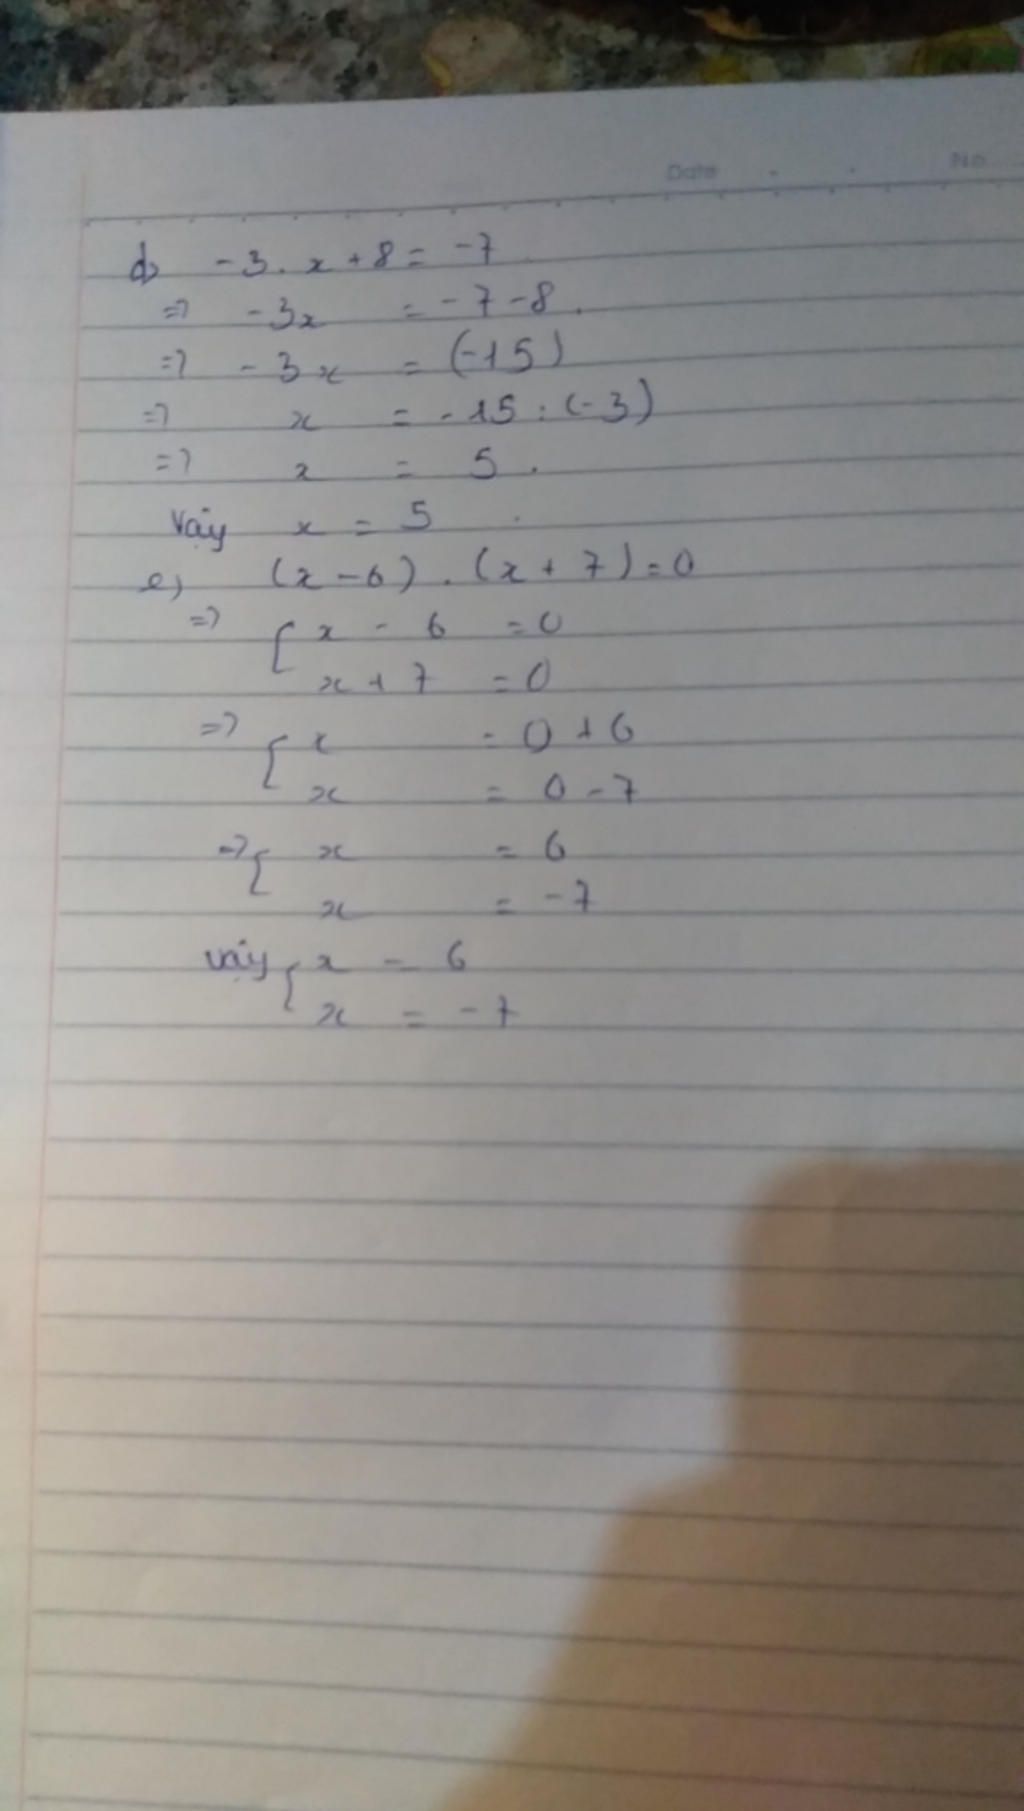 Date No
d) -3. x + 8 = -7
=> -3x = -7 -8.
=> -3x = (-15)
=> x = -15 : (-3)
=> x = 5.
Vậy x = 5
e) (x - 6) . (x + 7) = 0
=> [ x - 6 = 0
x + 7 = 0
=> { x = 0 + 6
x = 0 - 7
=> { x = 6
x = -7
Vậy { x = 6
x = -7